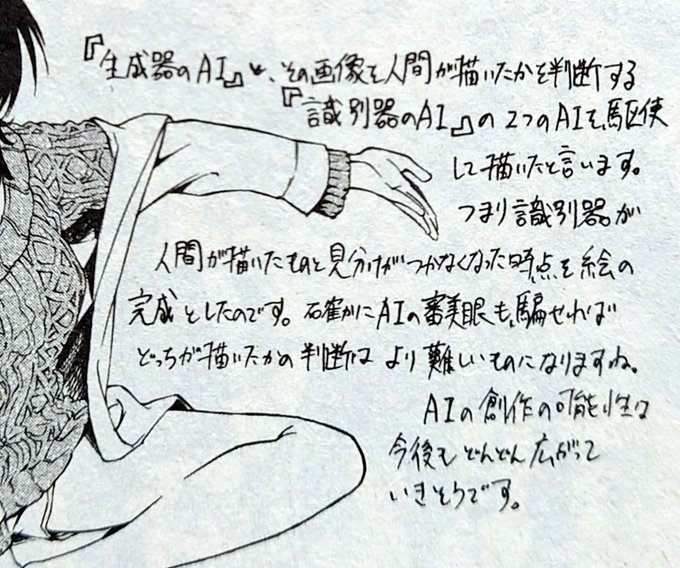 『生成器のAI』と、その画像を人間が描いたかを判断する
『識別器のAI』の2つのAIを駆使
して描いたと言います。
つまり識別器が
人間が描いたものと見分けがつかなくなった時点を絵の
完成としたのです。確かにAIの審美眼も騙せれば
どっちが描いたかの判断は より難しいものになりますね。
AIの創作の可能性は
今後もどんどん広がって
いきそうです。